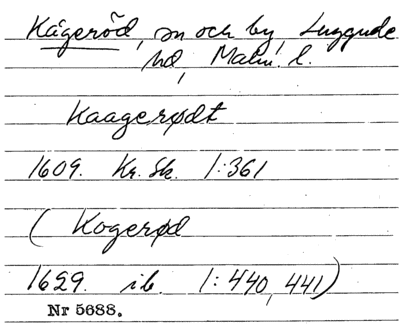 Kågeröd, sn och by, Luggude
hd, Malm. l.
Kaagerødt
1609. Kr. Sk. 1:361
( Kogerød
1629. ib. 1:440, 441)
Nr 5688.